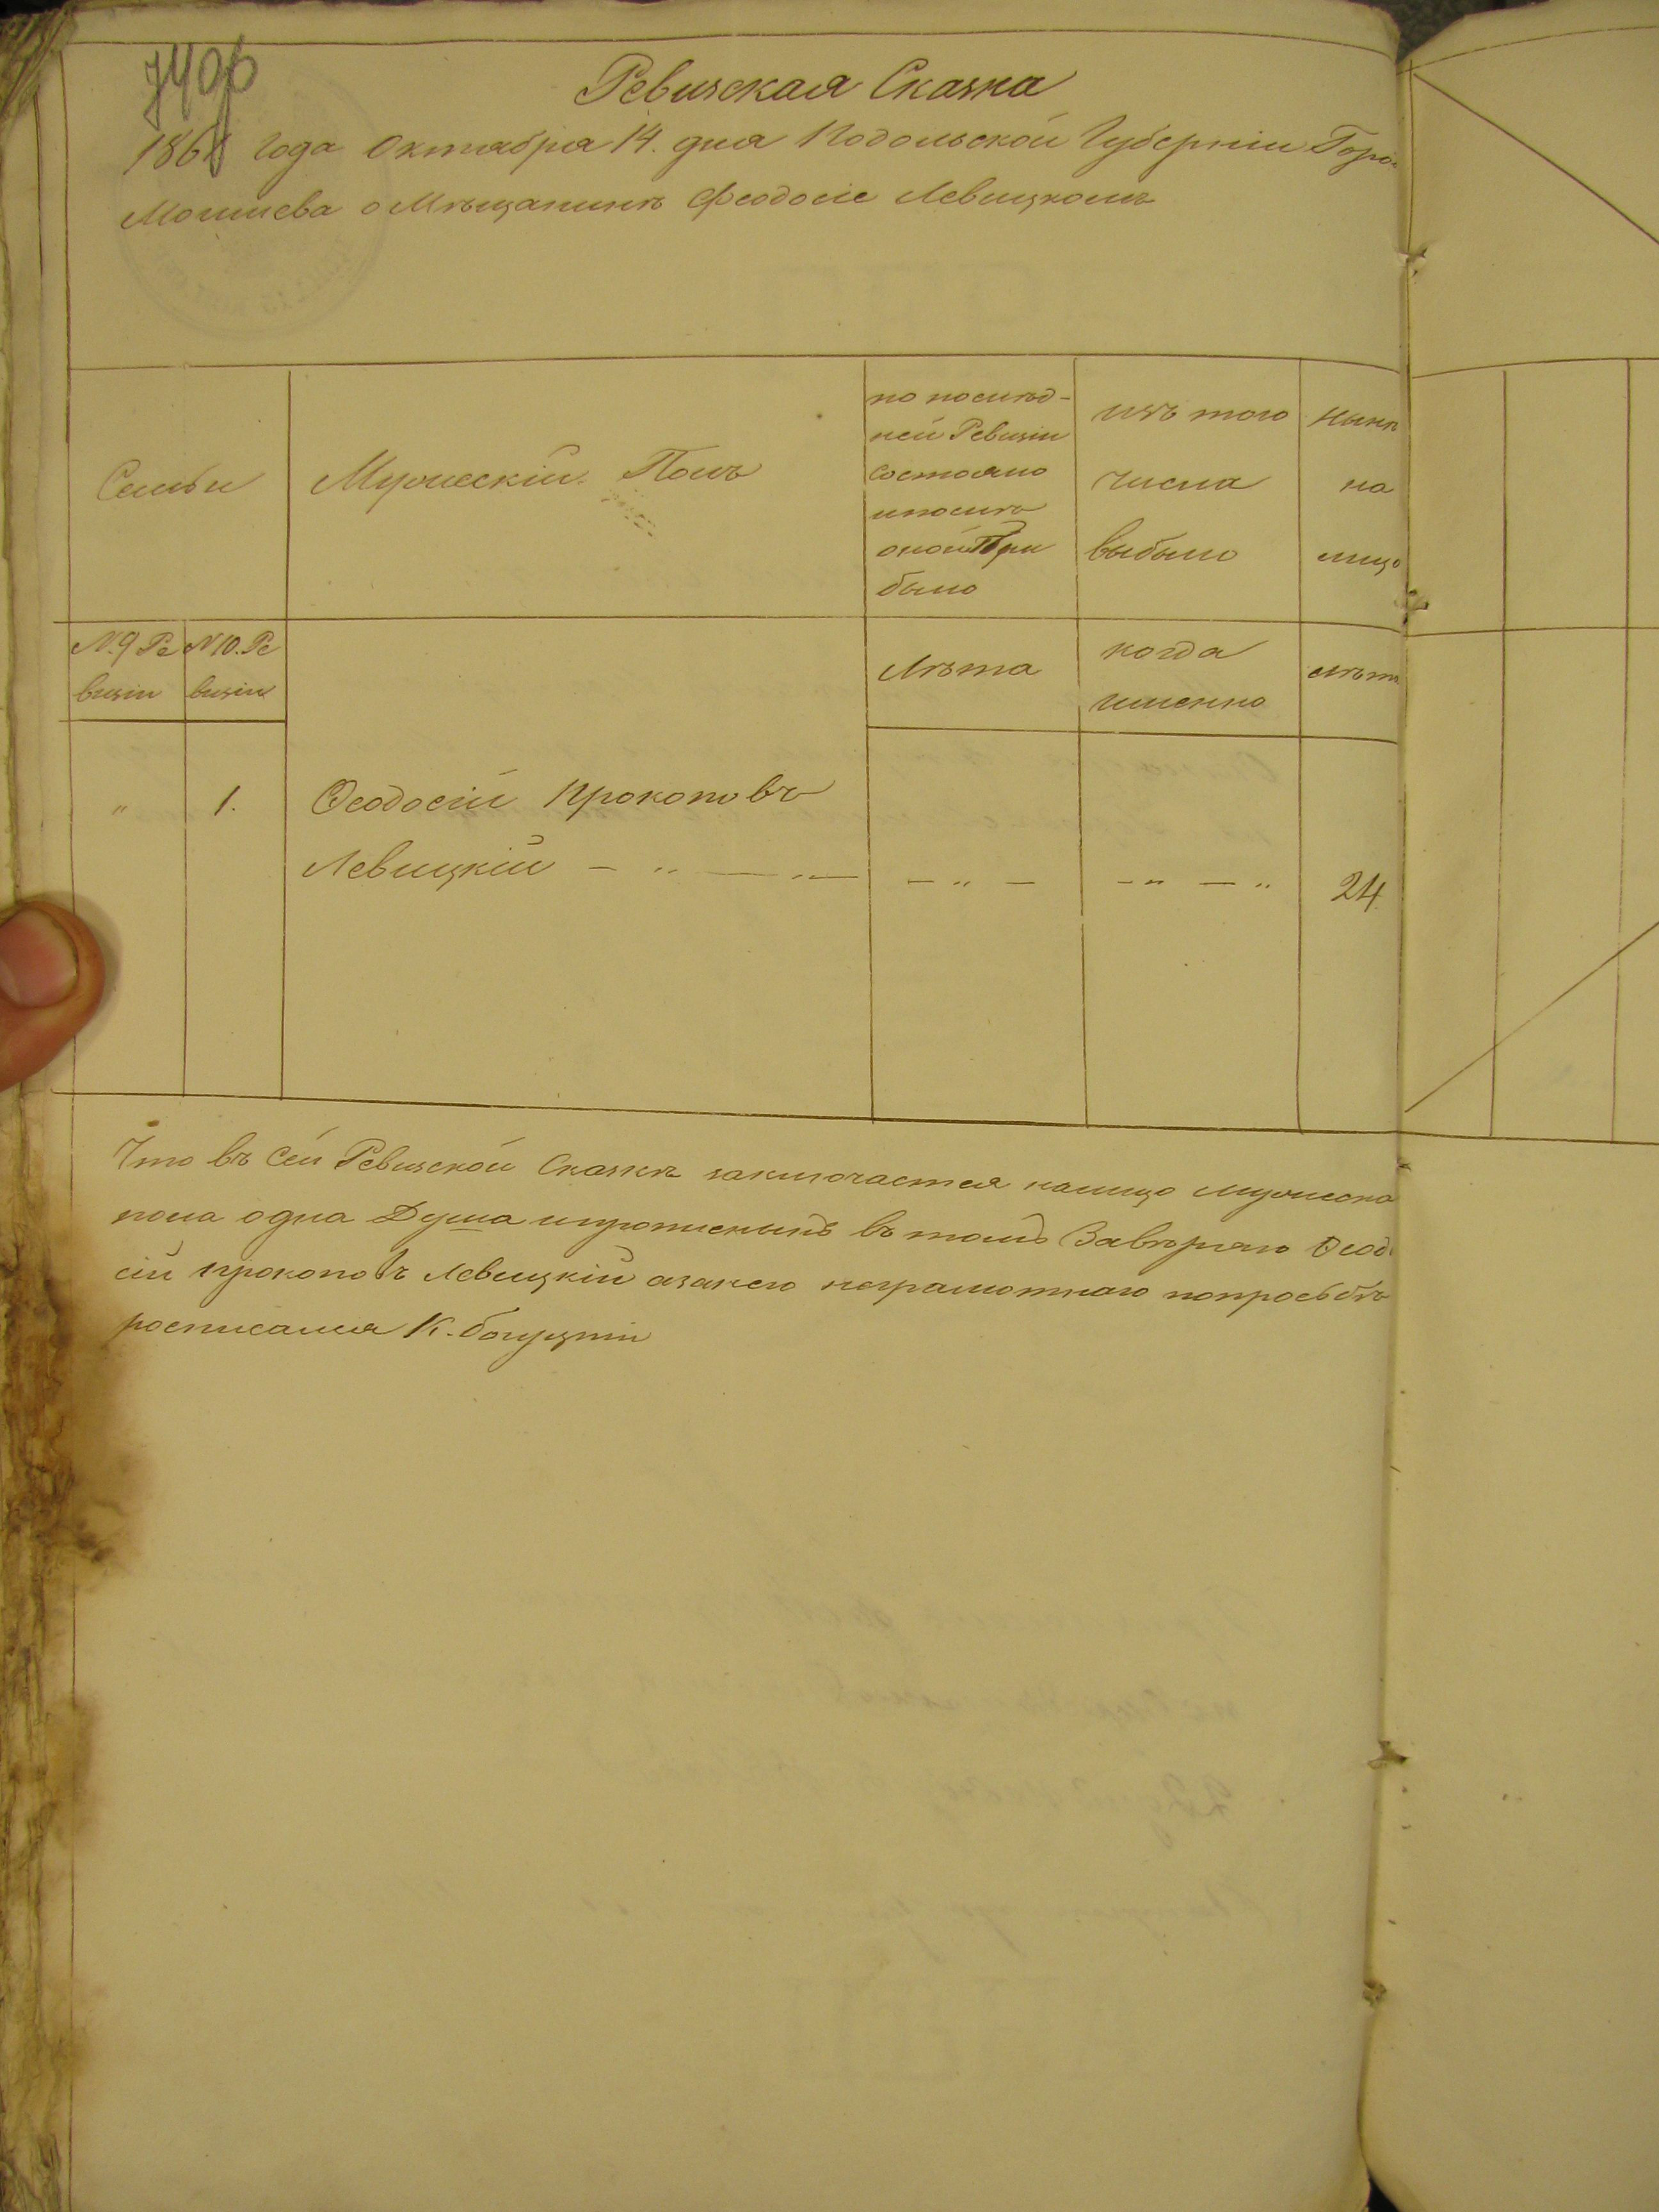 Ревизская Сказка
1861 года Октября 14. дня Подольской Губерніи Горо
Могилева о Мѣщанинѣ Феодосіе Левицкомъ
Семьи
Мужескій Полъ
по послѣд-
ней Ревизіи
состояло
и послѣ
оной При
было
изъ того
числа
выбыло
Нынѣ
на
лицо
N. 9 Ре
визіи
N 10. Ре
визіи
Лѣта
когда
именно
лѣта
" 1. Ѳеодосій Прокоповъ
Левицкій — " — " — — " — — " — " 24
Что въ Сей Ревизской Сказкѣ заключается налицо мужеска
пола одна Душа и прописныхъ въ томъ Завѣряю Ѳеодо
сій Прокоповъ Левицкій а за него неграмотнаго по прозьбѣ
росписался К.